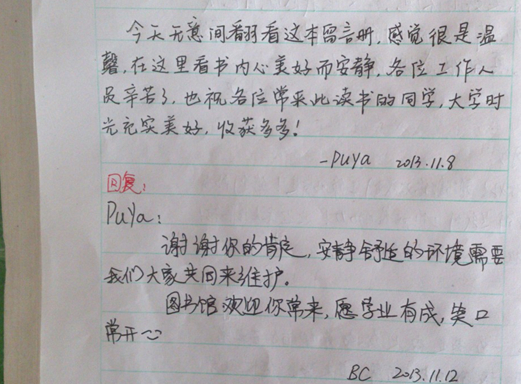 今天无意间翻看这本留言册，感觉很是温
馨，在这里看书内心美好而安静，各位工作人
员辛苦了，也祝各位常来此读书的同学，大学时
光充实美好，收获多多！
-PuYa 2013.11.8
回复：
PuYa：
谢谢你的肯定，安静舒适的环境需要
我们大家共同来维护。
图书馆欢迎你常来，愿学业有成，笑口
常开
BC 2013.11.12